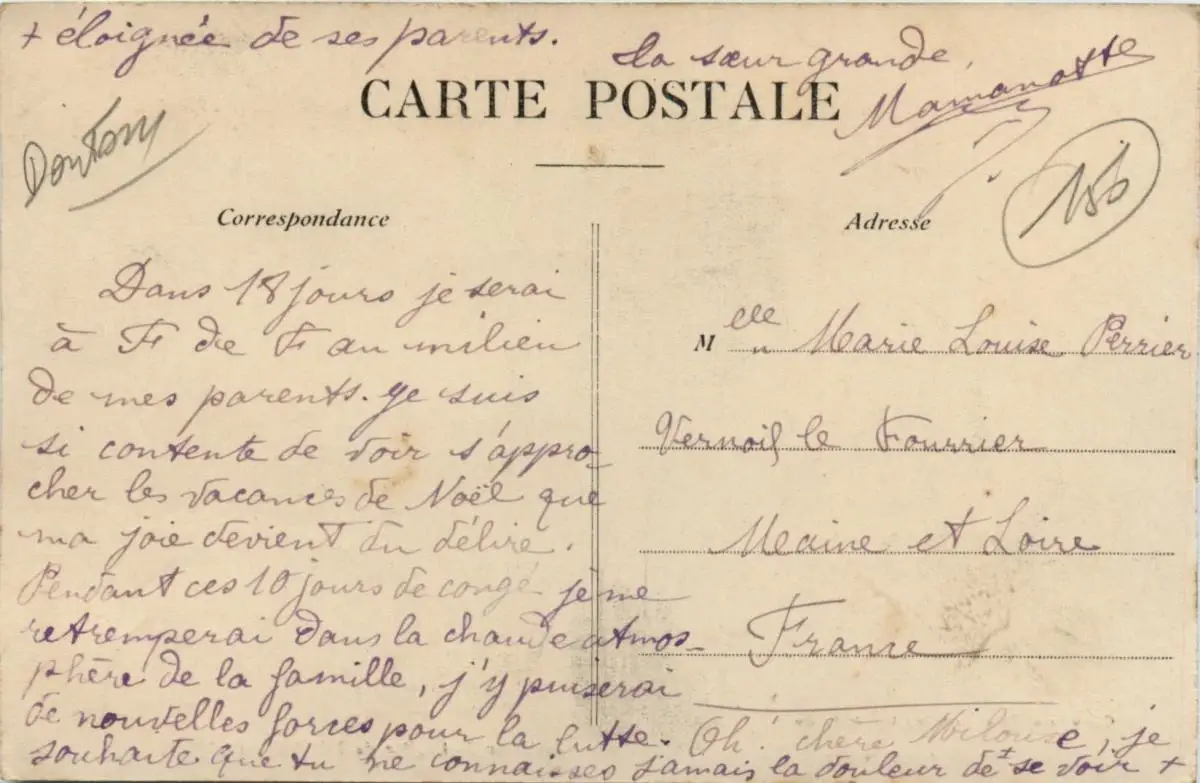 + éloignée de ses parents.
Ta sœur grande,
CARTE POSTALE
Mamanotte
155
Correspondance
Adresse
Dans 18 jours je serai
à F de F au milieu
de mes parents. Je suis
si contente de voir s'appro-
cher les vacances de Noël que
ma joie devient du délire.
Pendant ces 10 jours de congé je me
retremperai dans la chaude atmos-
phère de la famille, j'y puiserai
de nouvelles forces pour la lutte. Oh! chère Milouise, je
souhaite que tu ne connaisses jamais la douleur de se voir +
M elle Marie Louise Perrier
Vernoil le Fourrier
Maine et Loire
France